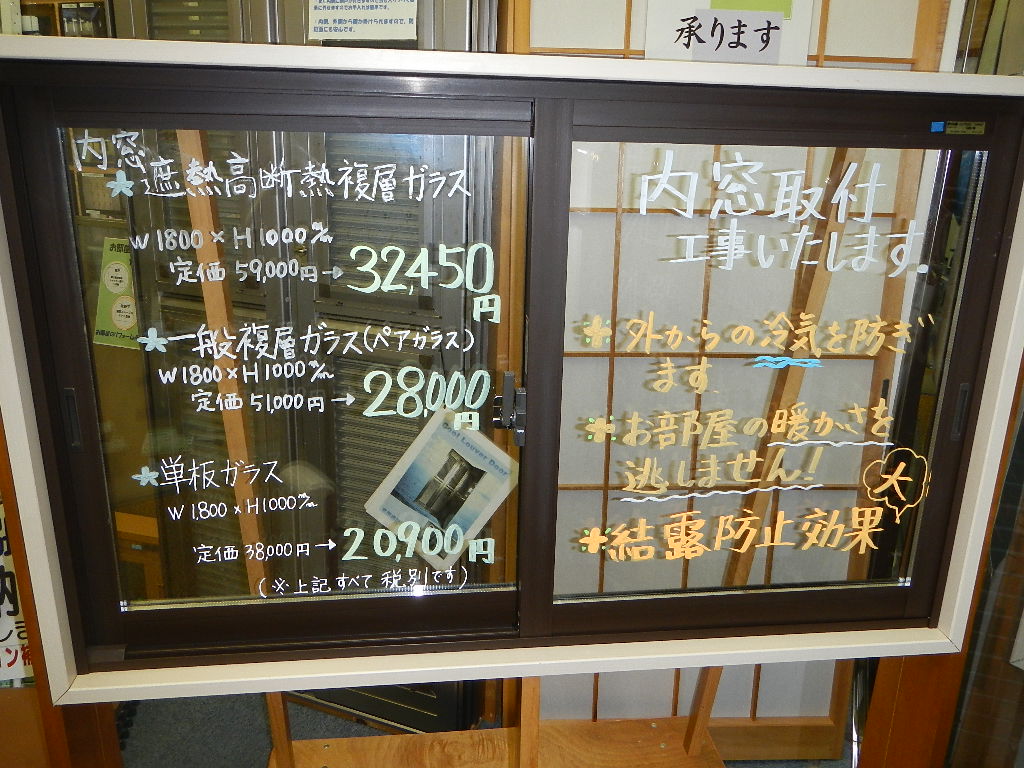 承ります
内窓
遮熱高断熱複層ガラス
W1800×H1000㎜
定価 59,000円→ 32,450円
一般複層ガラス(ペアガラス)
W1800×H1000㎜
定価 51,000円→ 28,000円
Cool Louver Door
単板ガラス
W1,800×H1000㎜
定価 38,000円→ 20,900円
(※上記すべて税別です)
内窓取付
工事いたします。
外からの冷気を防ぎ
ます
お部屋の暖かさを
逃しません!
結露防止効果
大